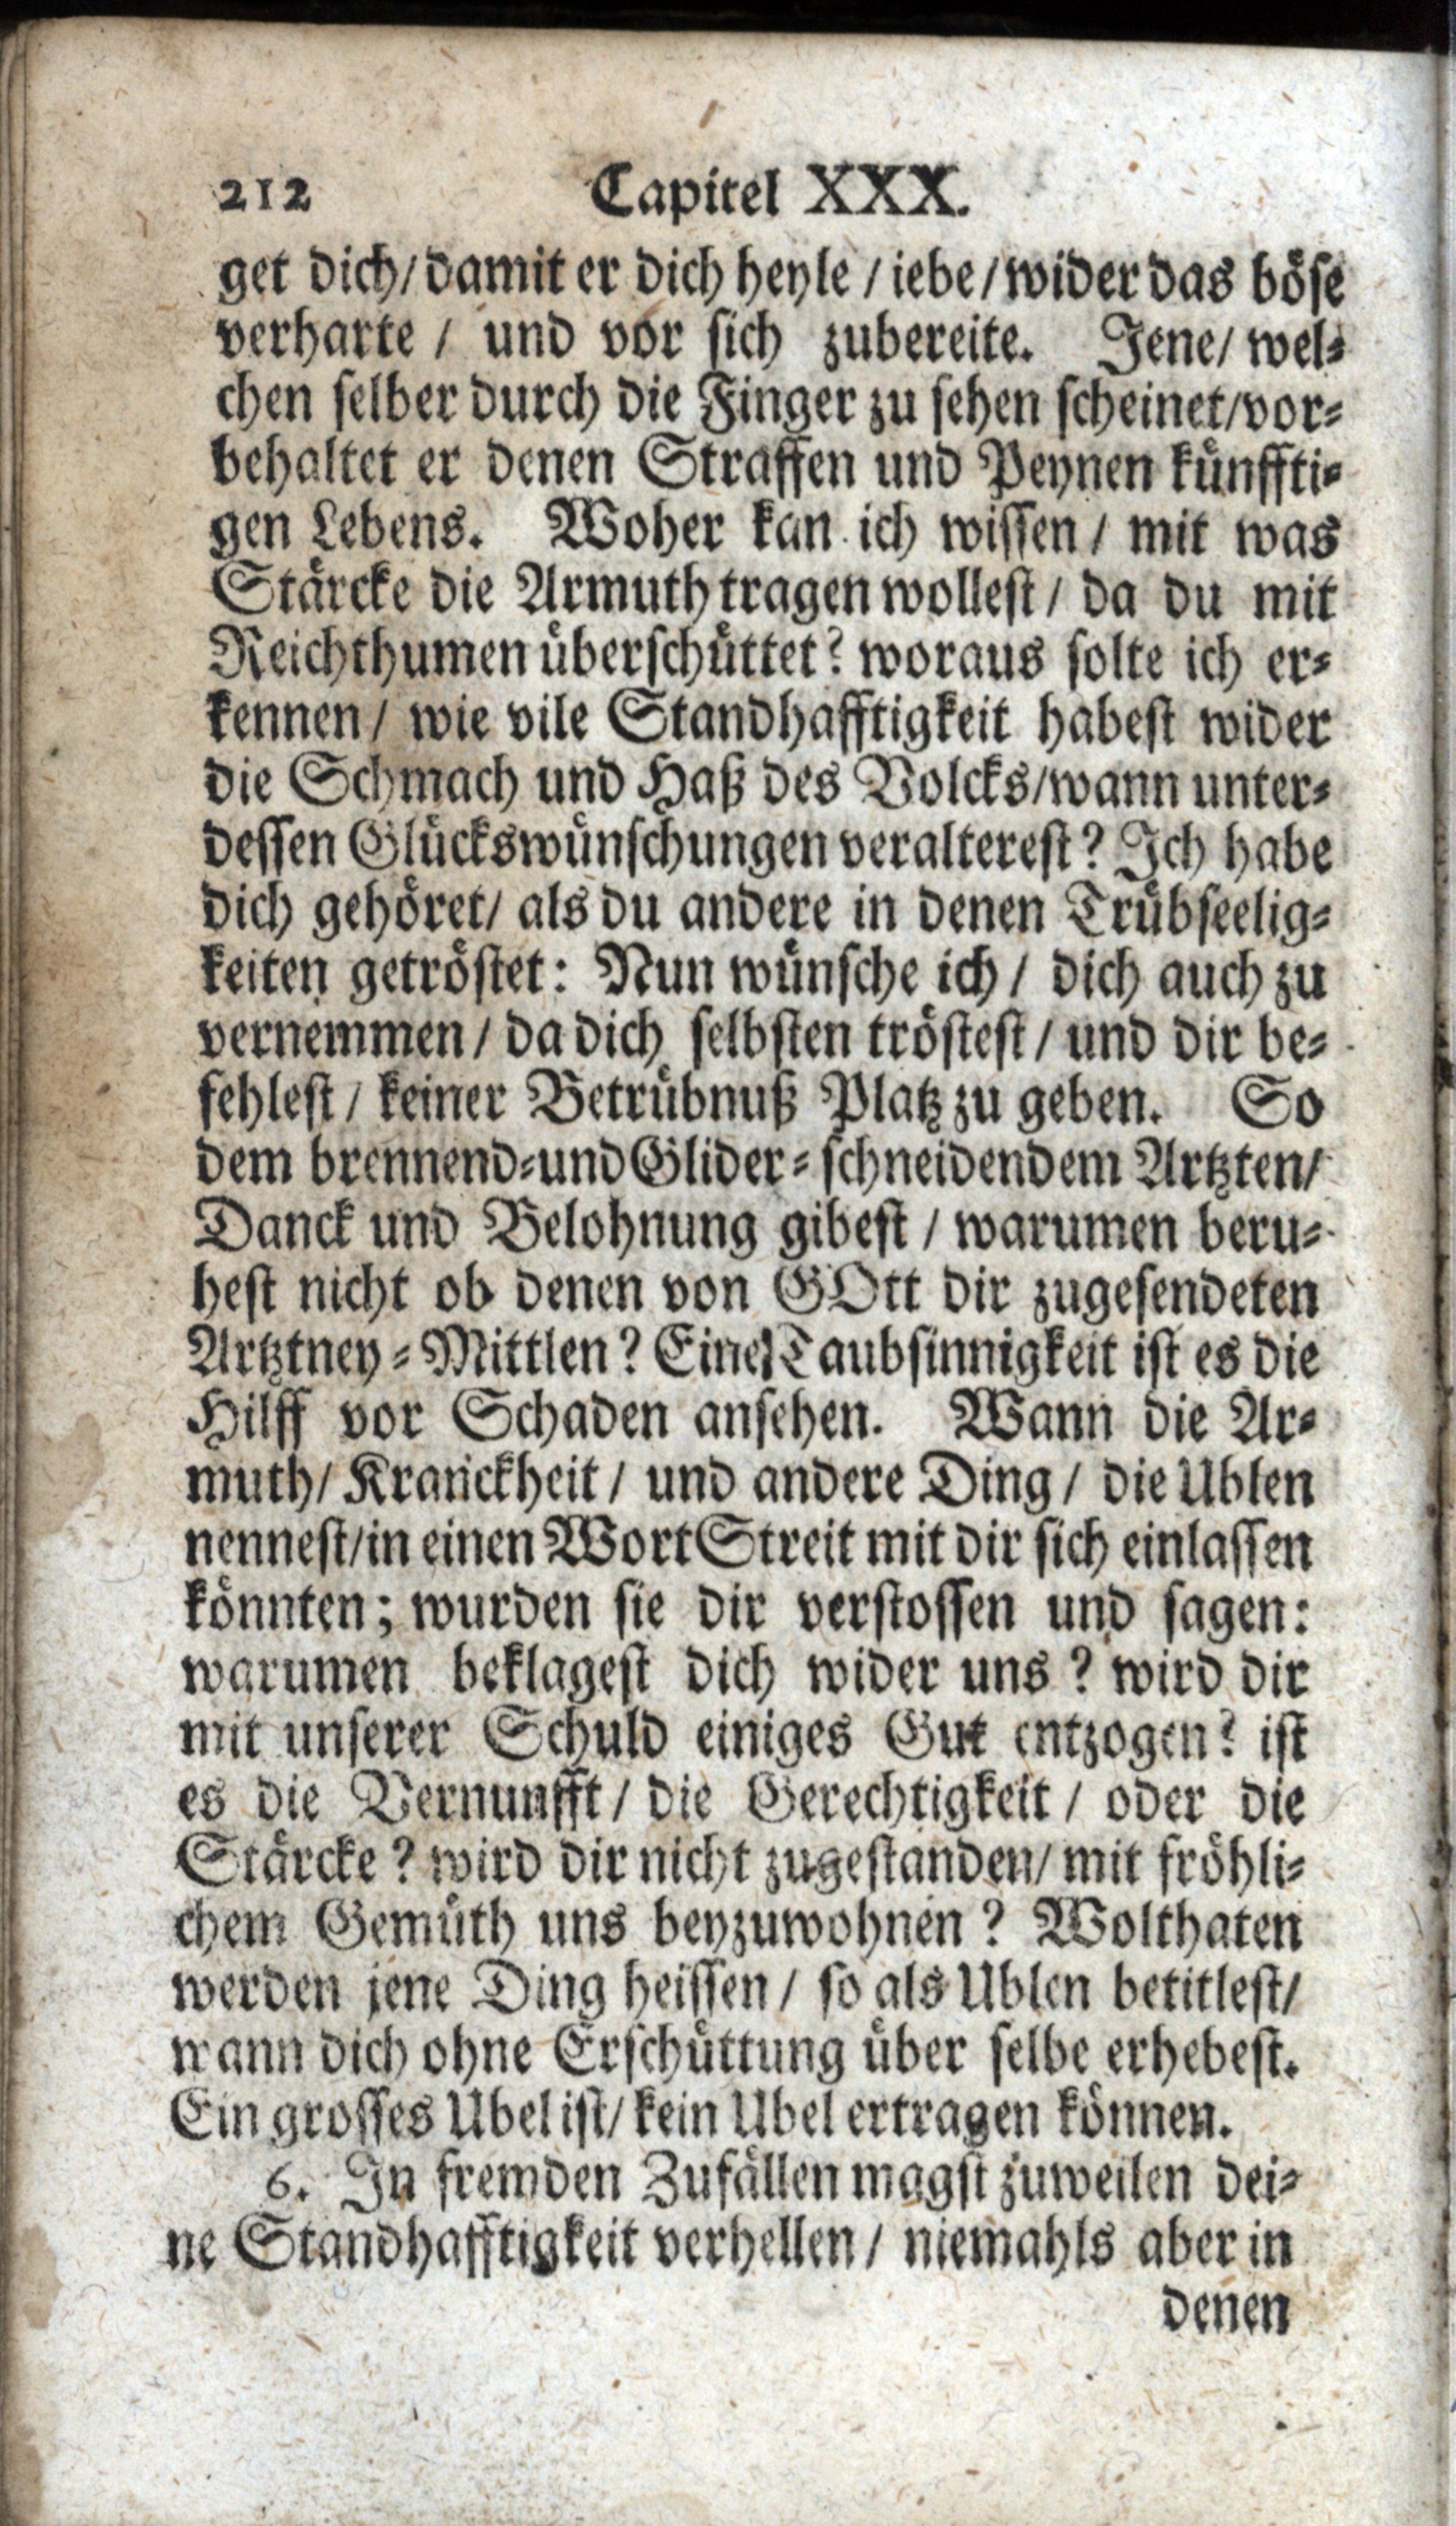 212 Capitel XXX.
get dich/ damit er dich heyle / iebe / wider das böse
verharte / und vor sich zubereite. Jene/ wel-
chen selber durch die Finger zu sehen scheinet/vor-
behaltet er denen Straffen und Peynen künffti-
gen Lebens. Woher kan ich wissen / mit was
Stärcke die Armuth tragen wollest / da du mit
Reichthumen überschüttet? woraus solte ich er-
kennen / wie vile Standhafftigkeit habest wider
die Schmach und Haß des Volcks/wann unter-
dessen Glückswünschungen veralterest? Ich habe
dich gehöret/ als du andere in denen Trübseelig-
keiten getröstet: Nun wünsche ich / dich auch zu
vernemmen / da dich selbsten tröstest / und dir be-
fehlest / keiner Betrübnuß Platz zu geben. So
dem brennend-und Glider-schneidendem Artzten/
Danck und Belohnung gibest / warumen beru-
hest nicht ob denen von GOtt dir zugesendeten
Artztney-Mittlen? Eine Taubsinnigkeit ist es die
Hilff vor Schaden ansehen. Wann die Ar-
muth/ Kranckheit / und andere Ding / die Ublen
nennest/in einen Wort Streit mit dir sich einlassen
könnten; wurden sie dir verstossen und sagen:
warumen beklagest dich wider uns? wird dir
mit unserer Schuld einiges Gut entzogen? ist
es die Vernunfft / die Gerechtigkeit / oder die
Stärcke? wird dir nicht zugestanden/ mit fröhli-
chem Gemüth uns beyzuwohnen? Wolthaten
werden jene Ding heissen / so als Ublen betitlest/
wann dich ohne Erschüttung über selbe erhebest.
Ein grosses Ubel ist/ kein Ubel ertragen können.
6. In fremden Zufällen magst zuweilen dei-
ne Standhafftigkeit verhellen / niemahls aber in
denen